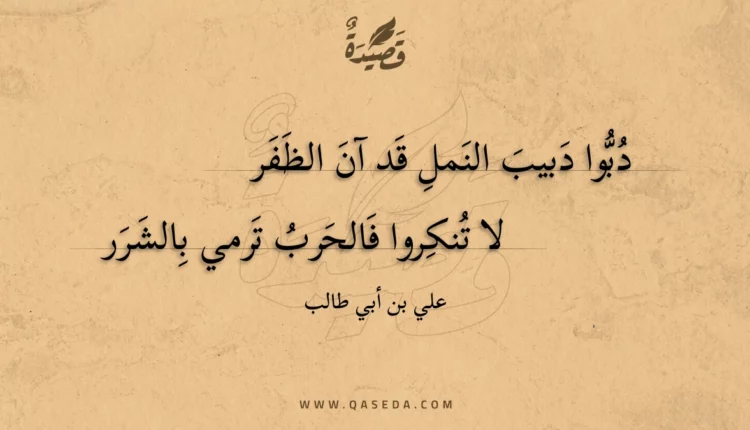 قَصِيدَةٌ
دُبُّوا دَبيبَ النَملِ قَد آنَ الظَفَر
لا تُنكِروا فَالحَربُ تَرمي بِالشَرَر
علي بن أبي طالب
WWW.QASEDA.COM